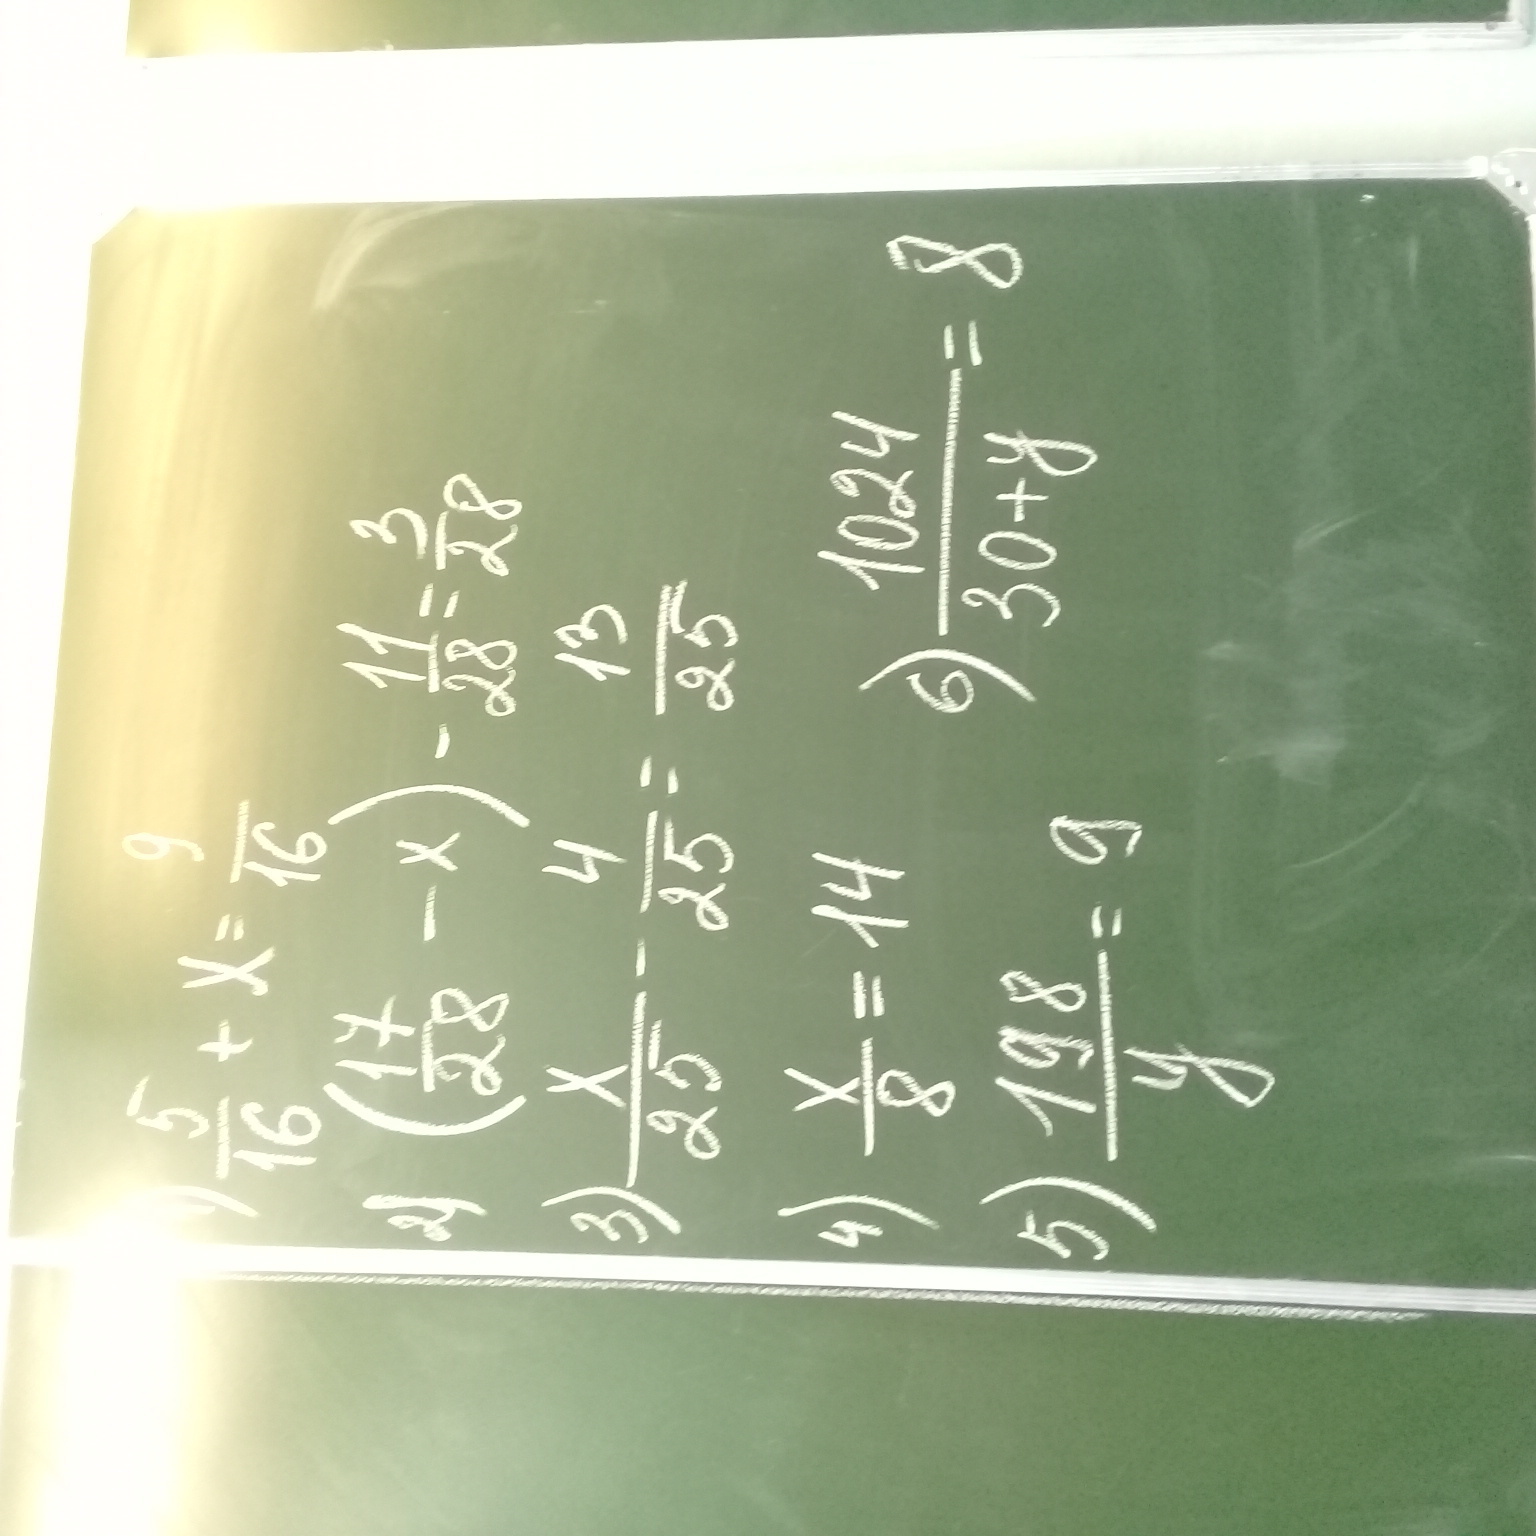 1) 5/16 + x = 9/16
2) (17/28 - x) - 11/28 = 3/28
3) x/25 - 4/25 = 13/25
4) x/8 = 14
5) 198/y = 9
6) 1024/(30+y) = 8